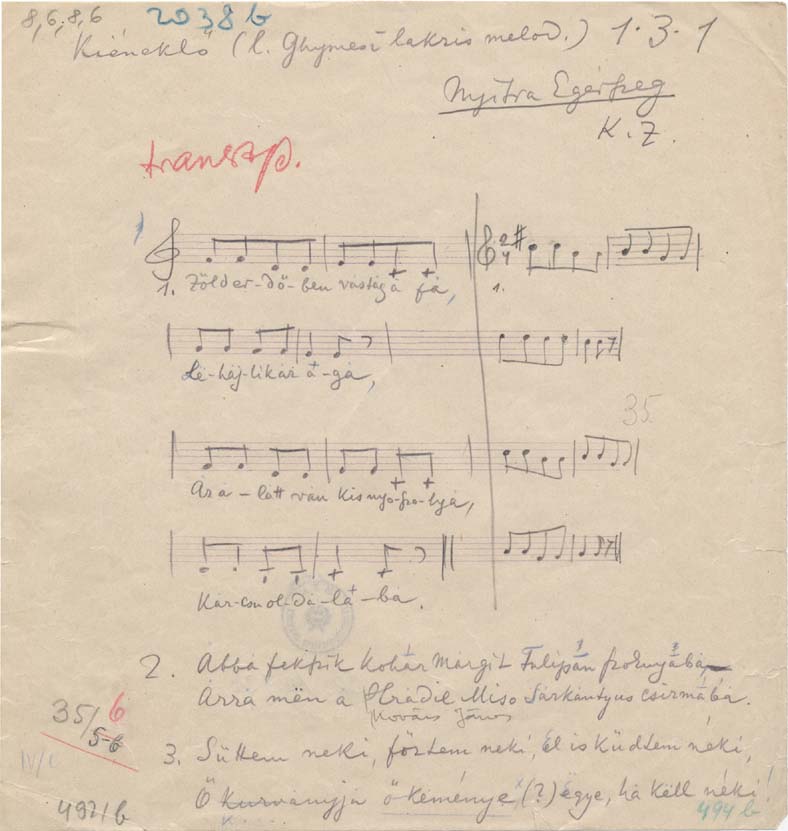 8, 6, 8, 6
2038 b
Kiéneklő (l. Ghymesi lakris melod.) 1.3.1
Nyitra Egerszeg
K. Z.
transzp.
1. Zölder-dő-ben vaståg å få,
1.
Le-håj-lik åz å-gå,
35.
Årå-lått vån kis nyo-szo-lyå,
Kår-csu ol-då-lå-bå.
2. Åbba fekszik Kohár Margit Tulipán szoknyába,
Årrå mën å Hradil Miso Sarkantyus csizmába.
Kovács János
35/6
5-6
3. Süttem neki, főztem neki, el is küdtem néki,
IV/
Ő kurvánnyja ő keménye (?) ëgye, ha këll néki!
492/b
494 b